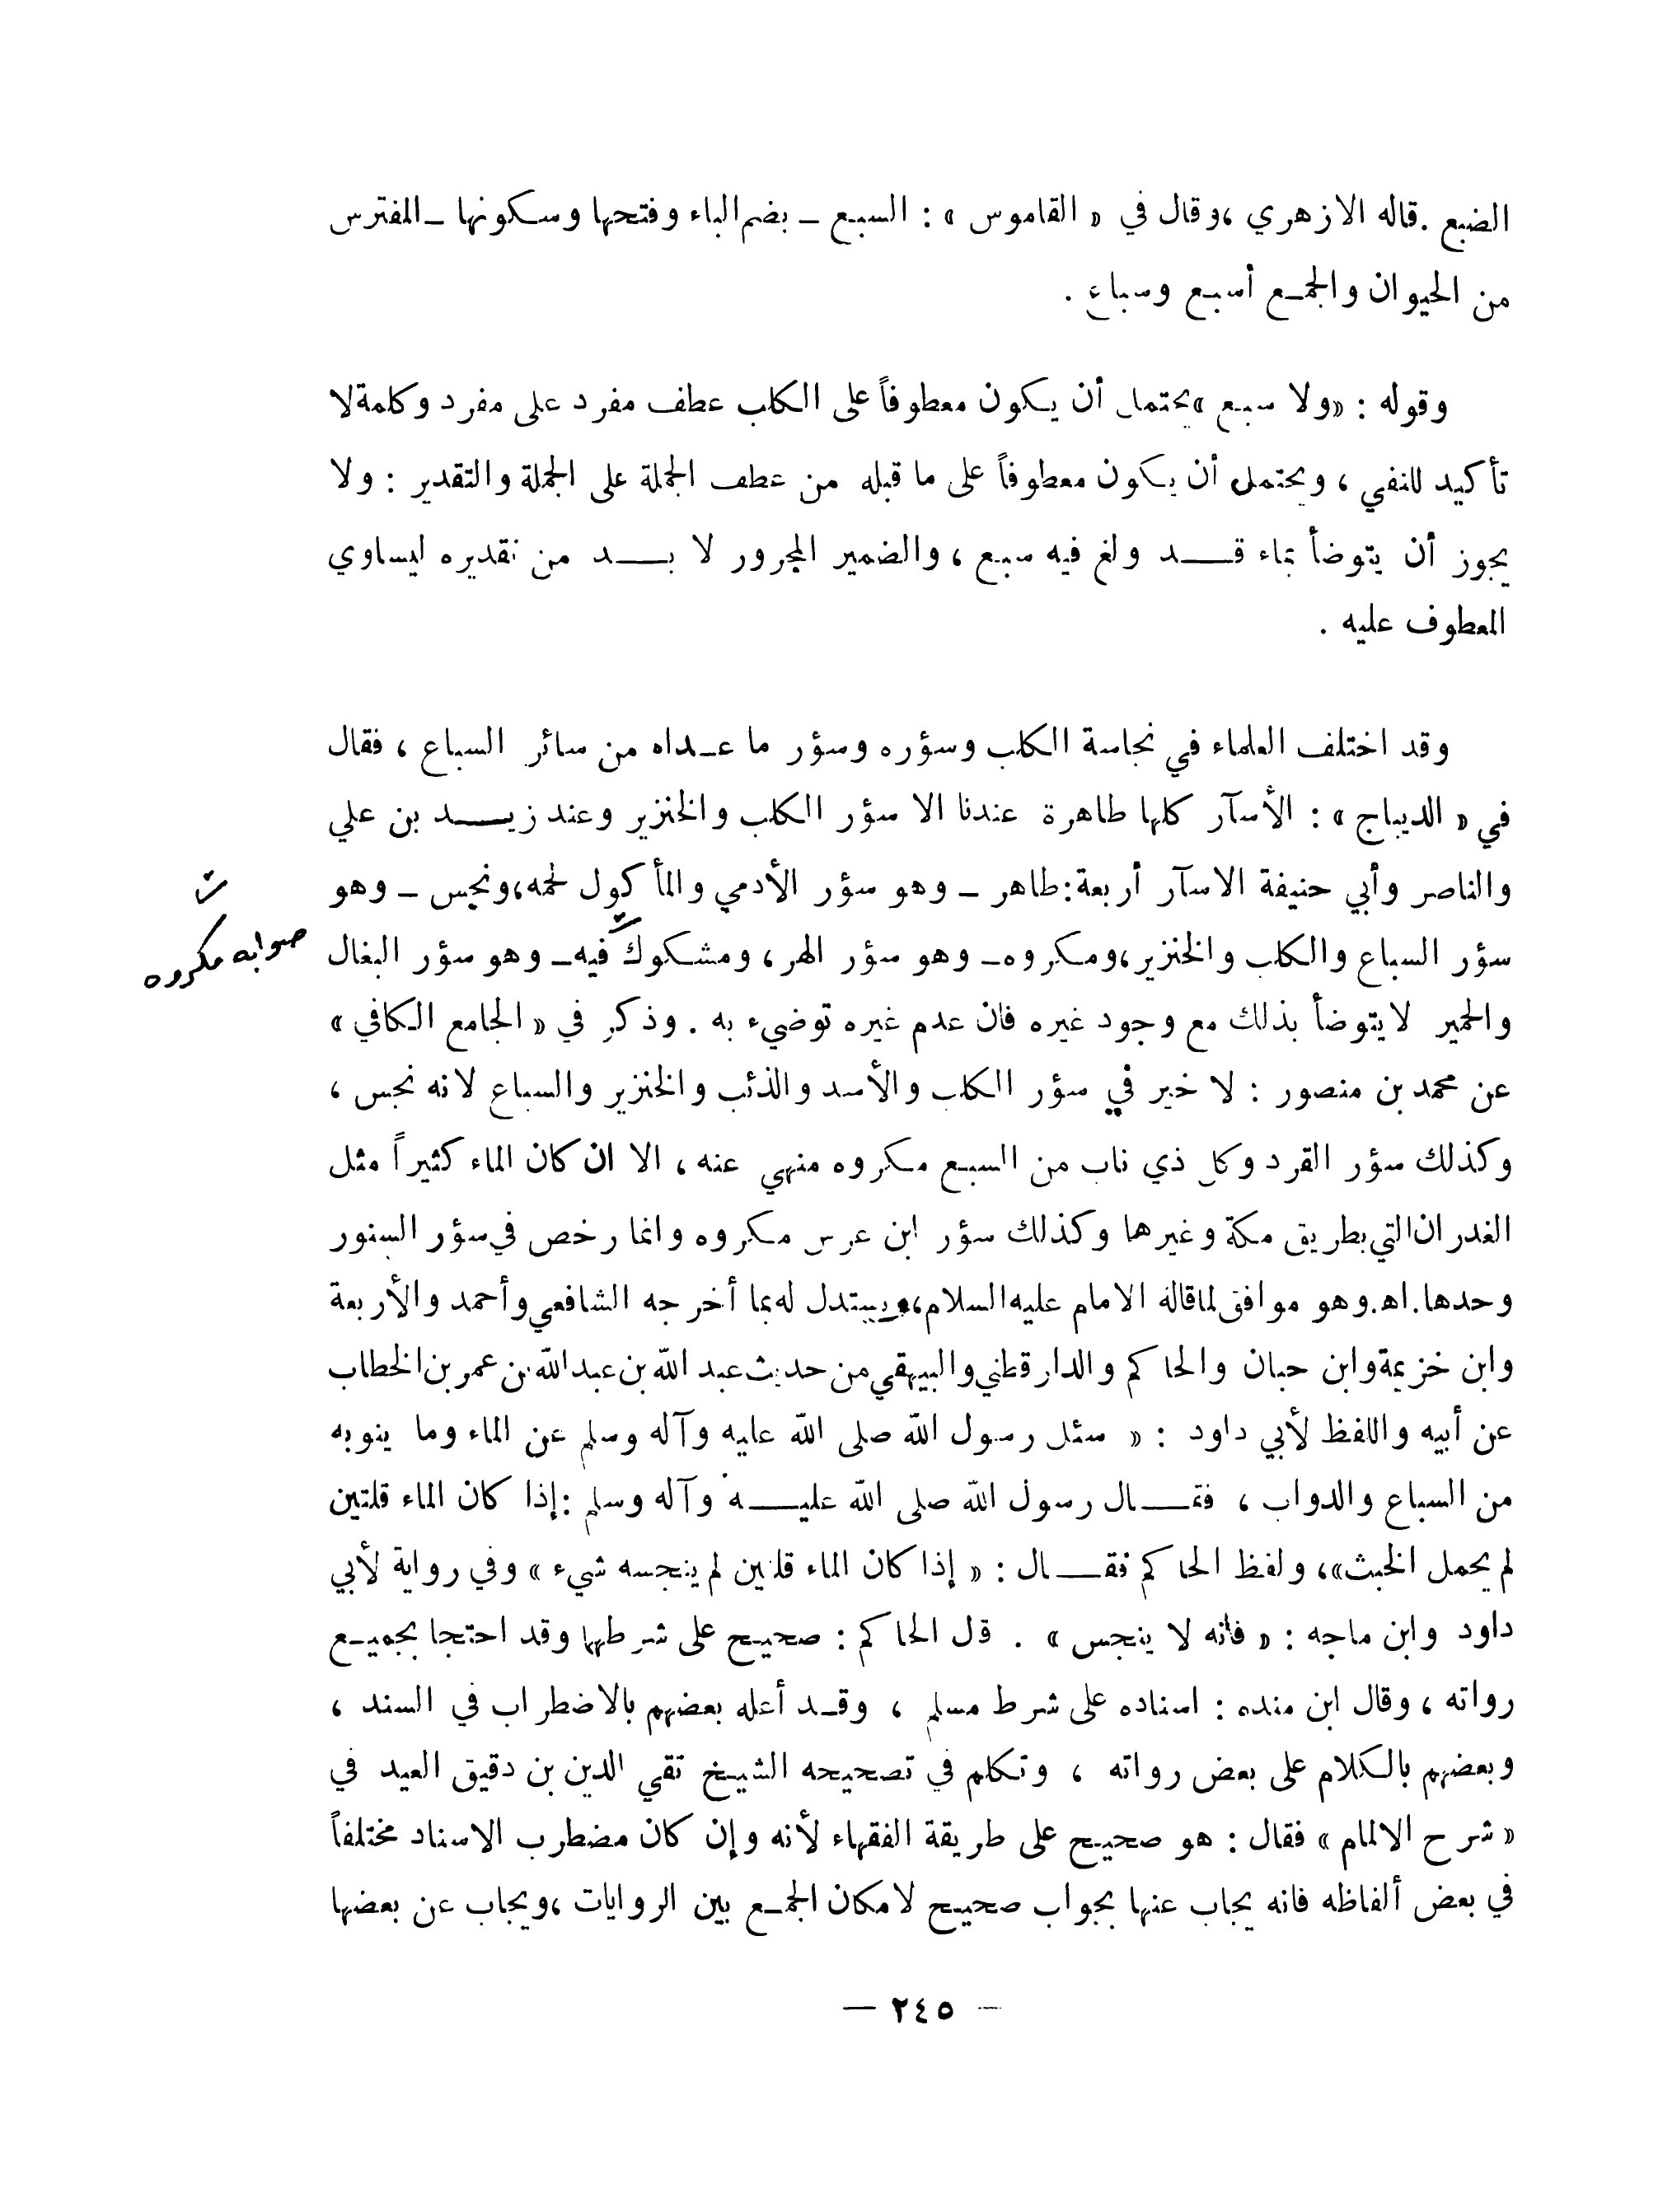 الضبع . قاله الازهري ، وقال في « القاموس » : السبع – بضم الباء وفتحها وسكونها – المفترس
من الحيوان والجمع أسبع وسباع .
وقوله : « ولا سبع » يحتمل أن يكون معطوفاً على الكلب عطف مفرد على مفرد وكلمة لا
تأكيد للنفي ، ويحتمل أن يكون معطوفاً على ما قبله من عطف الجملة على الجملة والتقدير : ولا
يجوز أن يتوضأ بماء قد ولغ فيه سبع ، والضمير المجرور لا بد من تقديره ليساوي
المعطوف عليه .
وقد اختلف العلماء في نجاسة الكلب وسؤره وسؤر ما عداه من سائر السباع ، فقال
في « الديباج » : الأسآر كلها طاهرة عندنا الا سؤر الكلب والخنزير وعند زيد بن علي
والناصر وأبي حنيفة الاسآر أربعة : طاهر – وهو سؤر الأدمي والمأكول لحمه ، ونجس – وهو
سؤر السباع والكلب والخنزير ، ومكروه – وهو سؤر الهر ، ومشكوك فيه – وهو سؤر البغال
صوابه مكروه
والحمير لا يتوضأ بذلك مع وجود غيره فان عدم غيره توضيء به . وذكر في « الجامع الكافي »
عن محمد بن منصور : لا خير في سؤر الكلب والأسد والذئب والخنزير والسباع لانه نجس ،
وكذلك سؤر القرد وكل ذي ناب من السبع مكروه منهي عنه ، الا ان كان الماء كثيراً مثل
الغدران التي بطريق مكة وغيرها وكذلك سؤر ابن عرس مكروه وانما رخص في سؤر السنور
وحدها . اه . وهو موافق لما قاله الامام عليه السلام ، ويستدل له بما أخرجه الشافعي وأحمد والأربعة
وابن خزيمة وابن حبان والحاكم والدارقطني والبيهقي من حديث عبد الله بن عبد الله بن عمر بن الخطاب
عن أبيه واللفظ لأبي داود : « سئل رسول الله صلى الله عليه وآله وسلم عن الماء وما ينوبه
من السباع والدواب ، فقال رسول الله صلى الله عليه وآله وسلم : إذا كان الماء قلتين
لم يحمل الخبث » ، ولفظ الحاكم فقال : « إذا كان الماء قلتين لم ينجسه شيء » وفي رواية لأبي
داود وابن ماجه : « فأنه لا ينجس » . قل الحاكم : صحيح على شرطهما وقد احتجا بجميع
رواته ، وقال ابن منده : اسناده على شرط مسلم ، وقد أعله بعضهم بالاضطراب في السند ،
وبعضهم بالكلام على بعض رواته ، وتكلم في تصحيحه الشيخ تقي الدين بن دقيق العيد في
« شرح الالمام » فقال : هو صحيح على طريقة الفقهاء لأنه وإن كان مضطرب الاسناد مختلفاً
في بعض ألفاظه فانه يجاب عنها بجواب صحيح لامكان الجمع بين الروايات ، ويجاب عن بعضها
– ٢٤٥ –